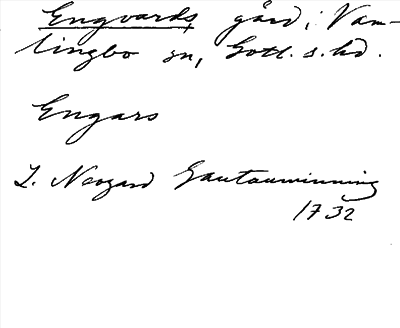 Engvards gård, i Vam-
lingbo sn, Gotl. s. hd.
Engars
L. Neogard Gautauminning
1732